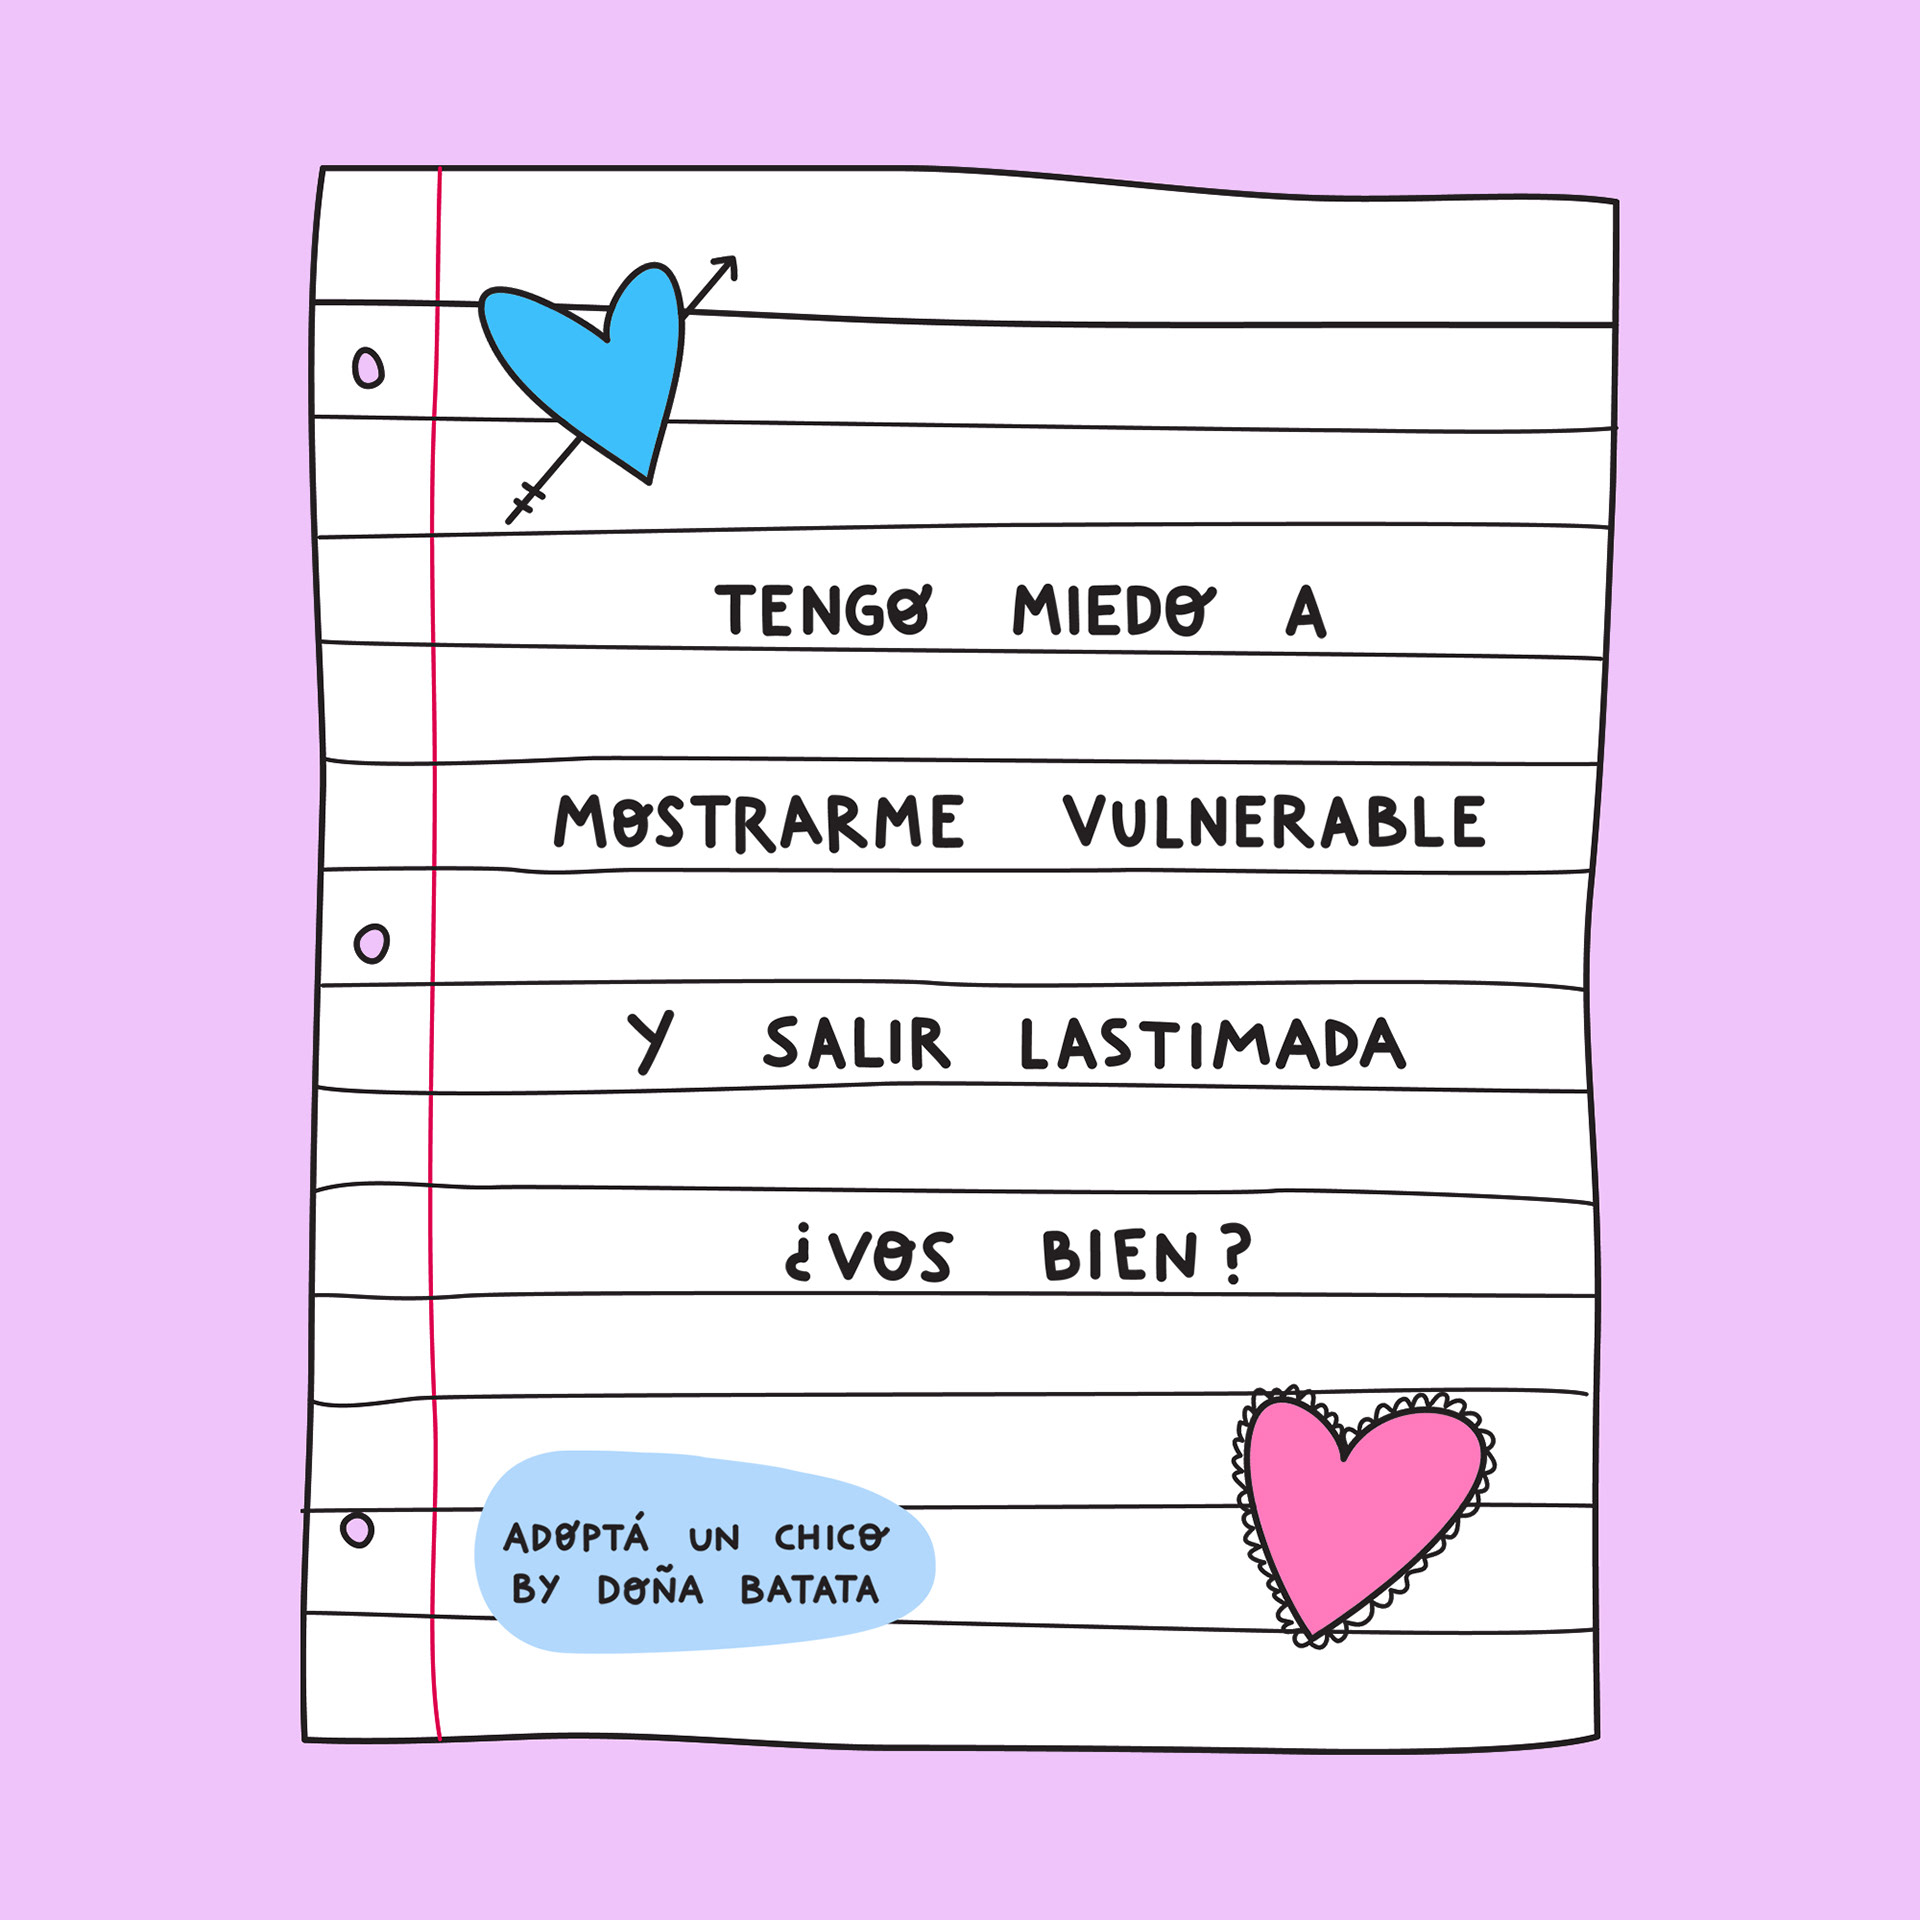 TENGO MIEDO A
MOSTRARME VULNERABLE
Y SALIR LASTIMADA
¿VOS BIEN?
ADOPTÁ UN CHICO
BY DOÑA BATATA